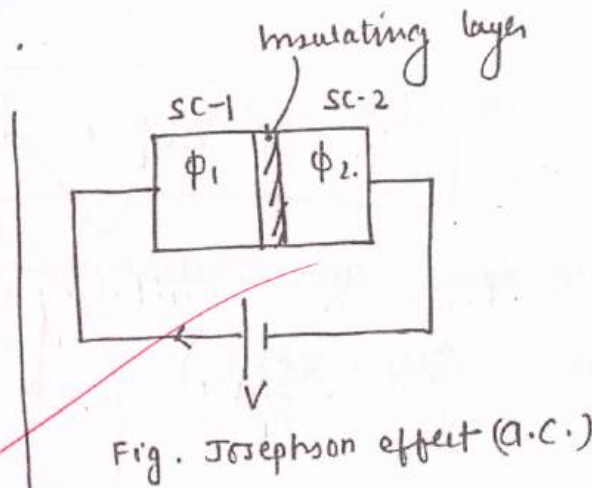 Insulating layer
SC-1 SC-2
Φ₁ Φ₂.
V
Fig. Josephson effect (a.c.)